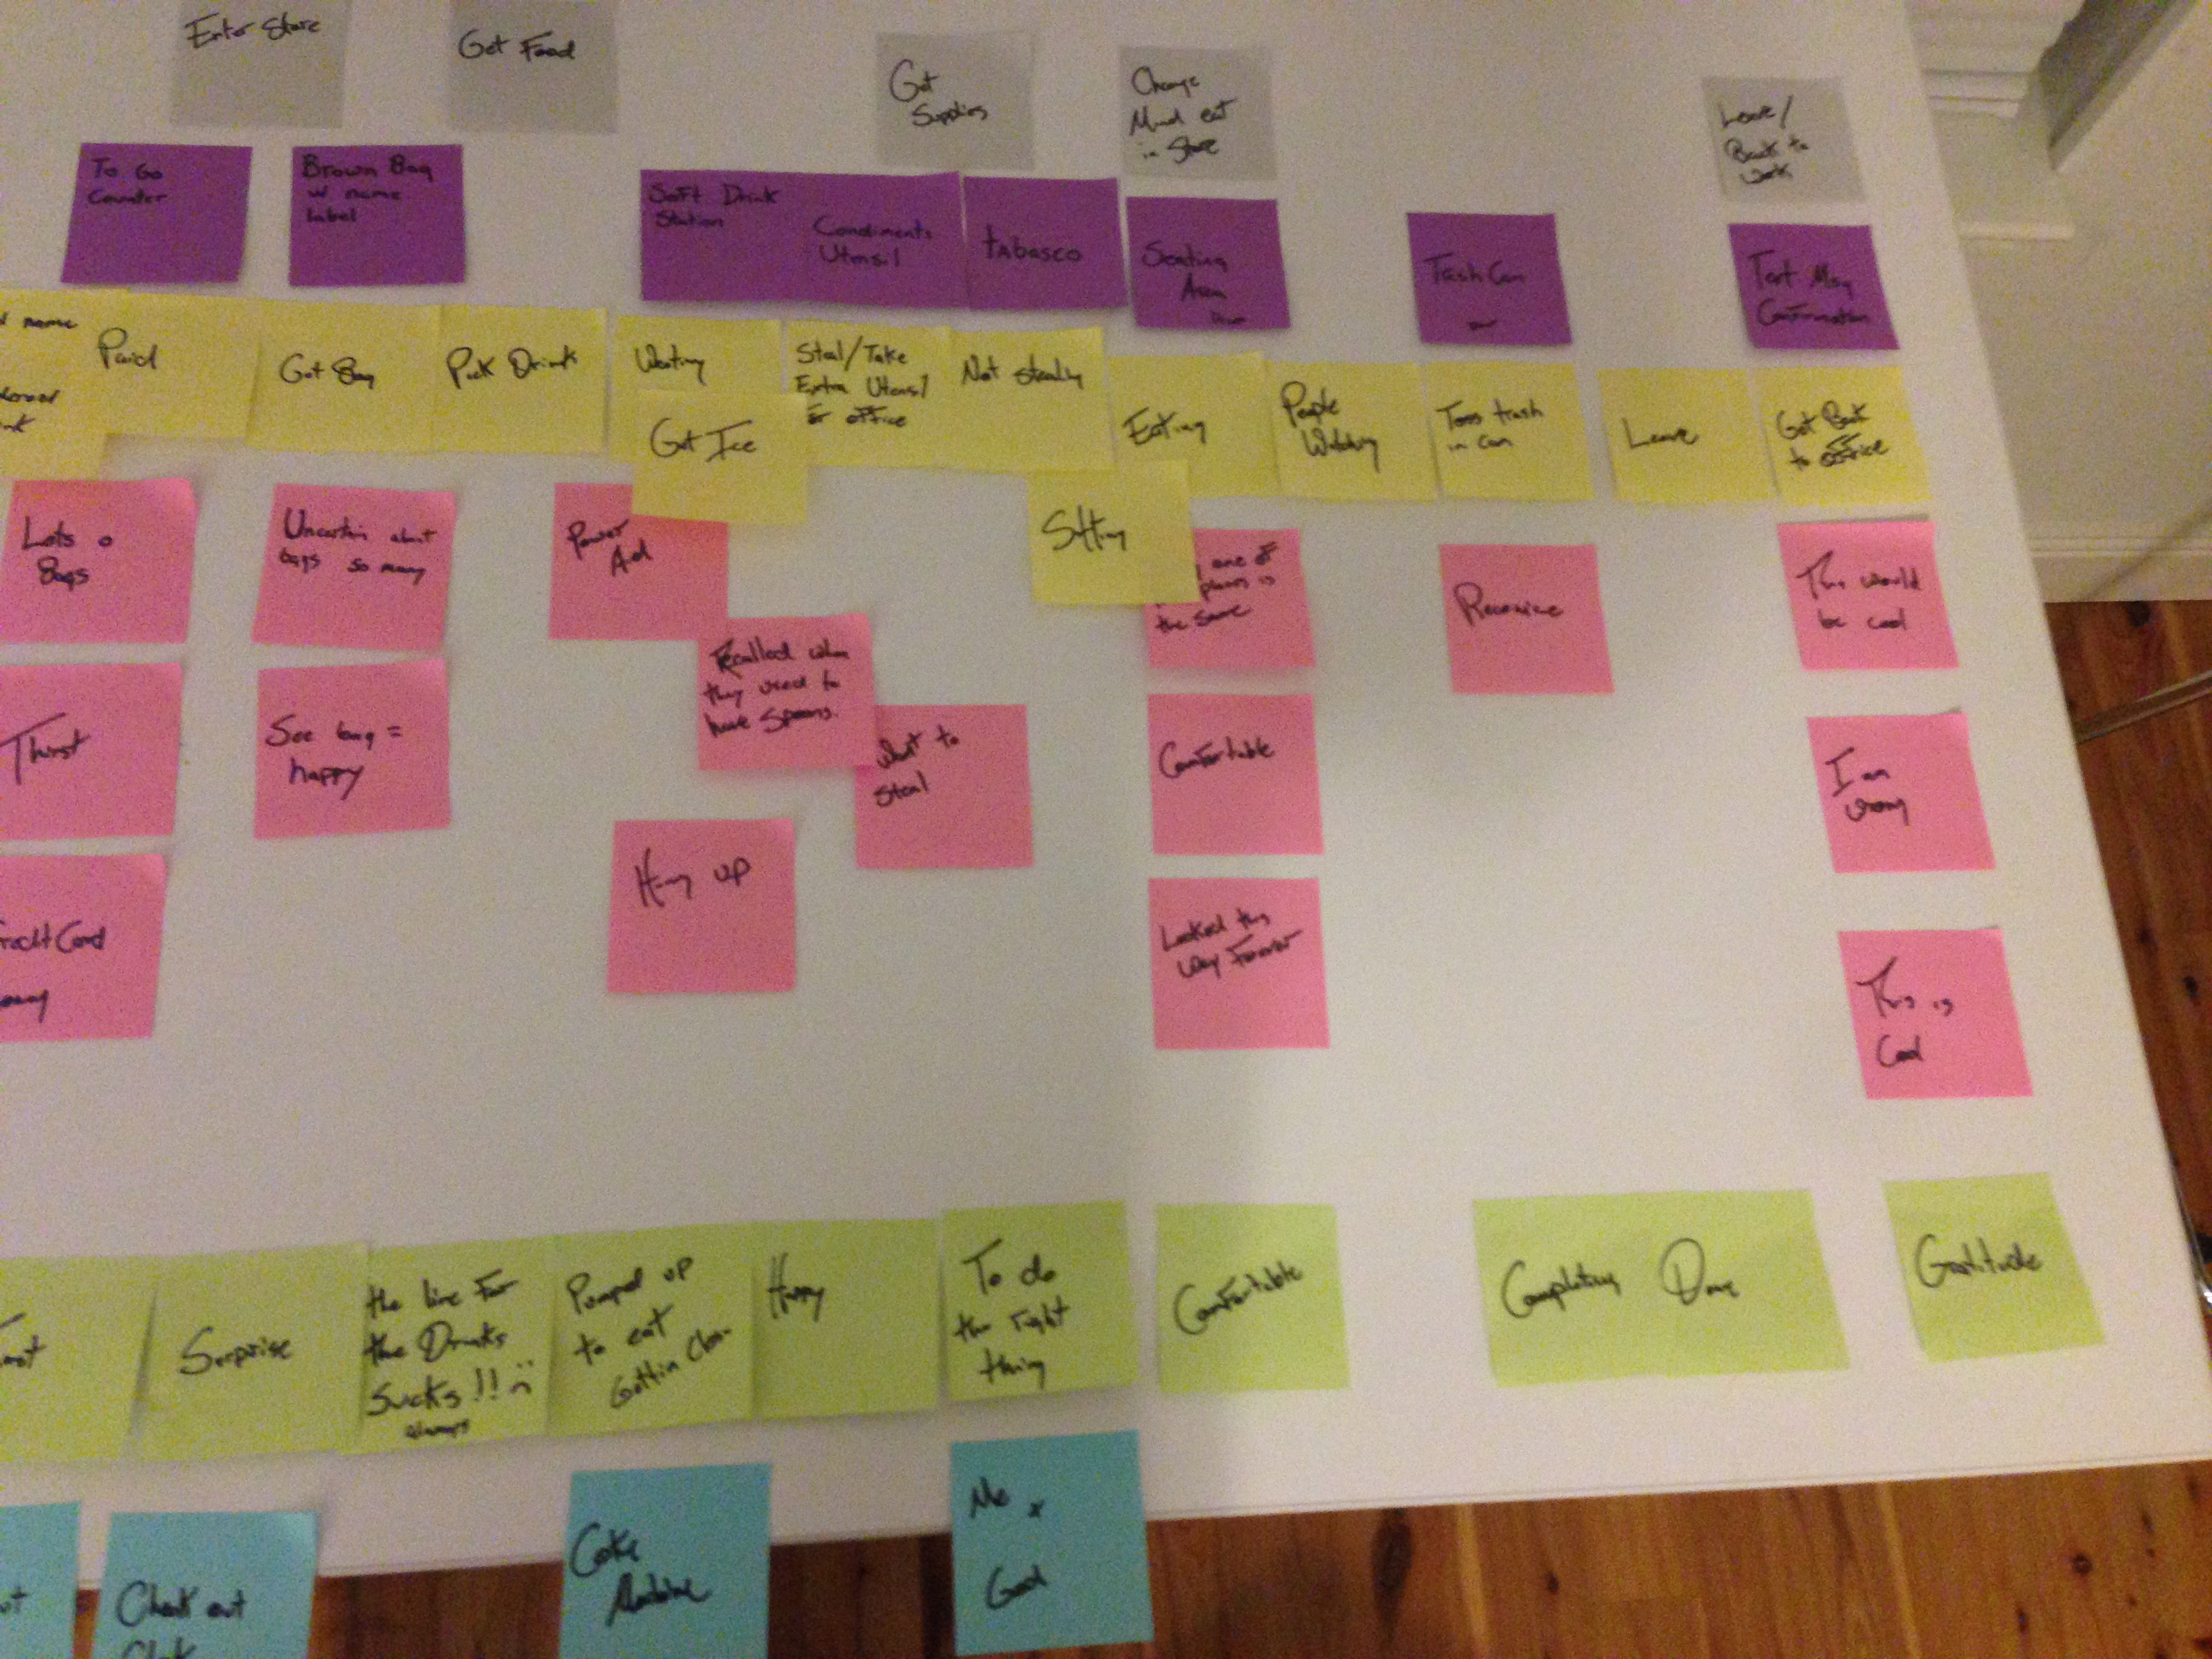 Enter Store
Get Food
Get
Supplies
Change
Mind eat
in Store
Leave/
Back to
work
To Go
Counter
Brown Bag
w name
label
Soft Drink
Station
Condiments
Utensil
tabasco
Seating
Area
Trash Can
Text Msg
Confirmation
name
Paid
Got Bag
Pick Drink
Waiting
Get Ice
Steal/Take
Extra Utensil
for office
Not stealing
Eating
Sitting
People
Watching
Toss trash
in can
Leave
Got Back
to office
Lots o
Bags
Uncertain about
bags so many
Power
Aid
one of
is
the same
This would
be cool
Recalled when
they used to
have spoons.
Thirst
See bag =
happy
Want to
steal
Comfortable
I am
wrong
Hurry up
Card
Looked this
way Forever
This is
Cool
Surprise
the line For
the Drinks
Sucks!!
always
Pumped up
to eat
Gettin Close
Happy
To do
the right
thing
Comfortable
Completing Done
Gratitude
Check out
Coke
Machine
Me +
God